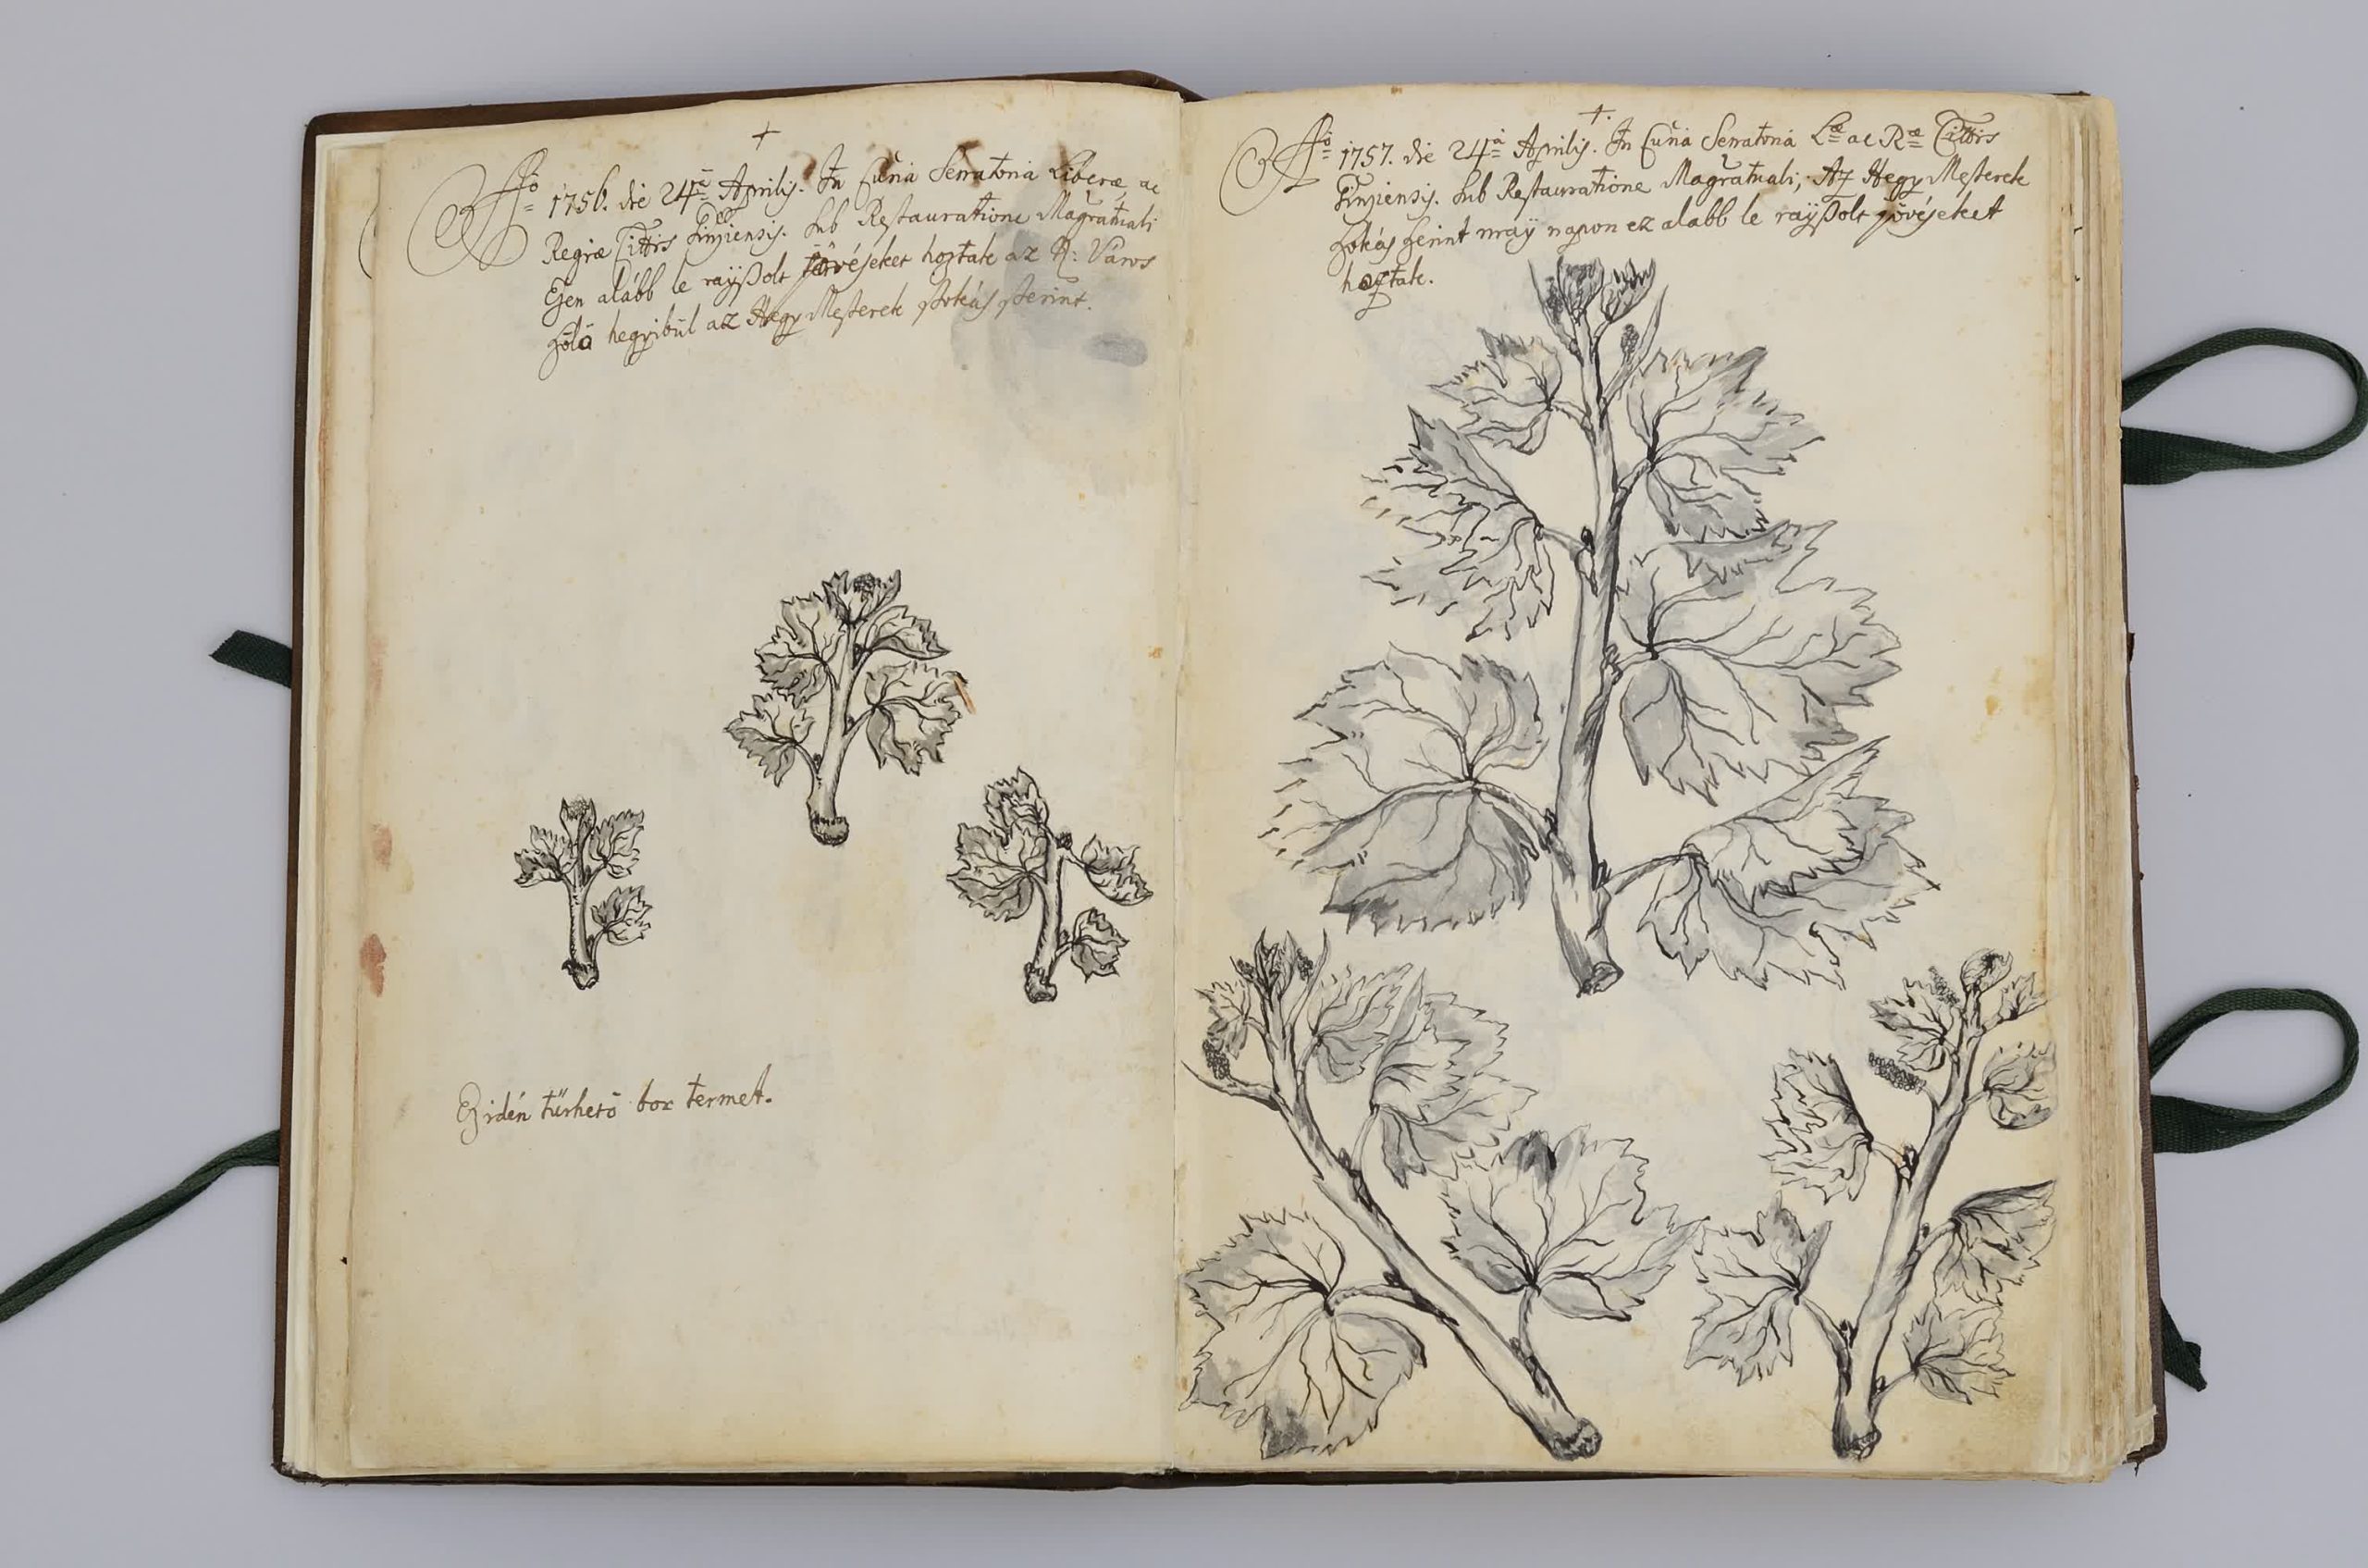 +
Aõ 1756. die 24ā Aprilis. In Curia Senatoria Liberæ ac
Regiæ Cittis Ginsiensis. sub Restauratione Magratuali
Ezen alább le rayßolt jövéseket hoztak az N: Város
Szölö hegyibül az Hegy Mesterek szokás szerint.
Ez idén türhetö bor termet.
+.
Aõ 1757. die 24ā Aprilis. In Curia Senatoria Læ ac Ræ Cittis
Ginsiensis. sub Restauratione Magratuali; Az Hegy Mesterek
szokás szerint may napon ez alább le rayßolt jövéseket
hoztak.